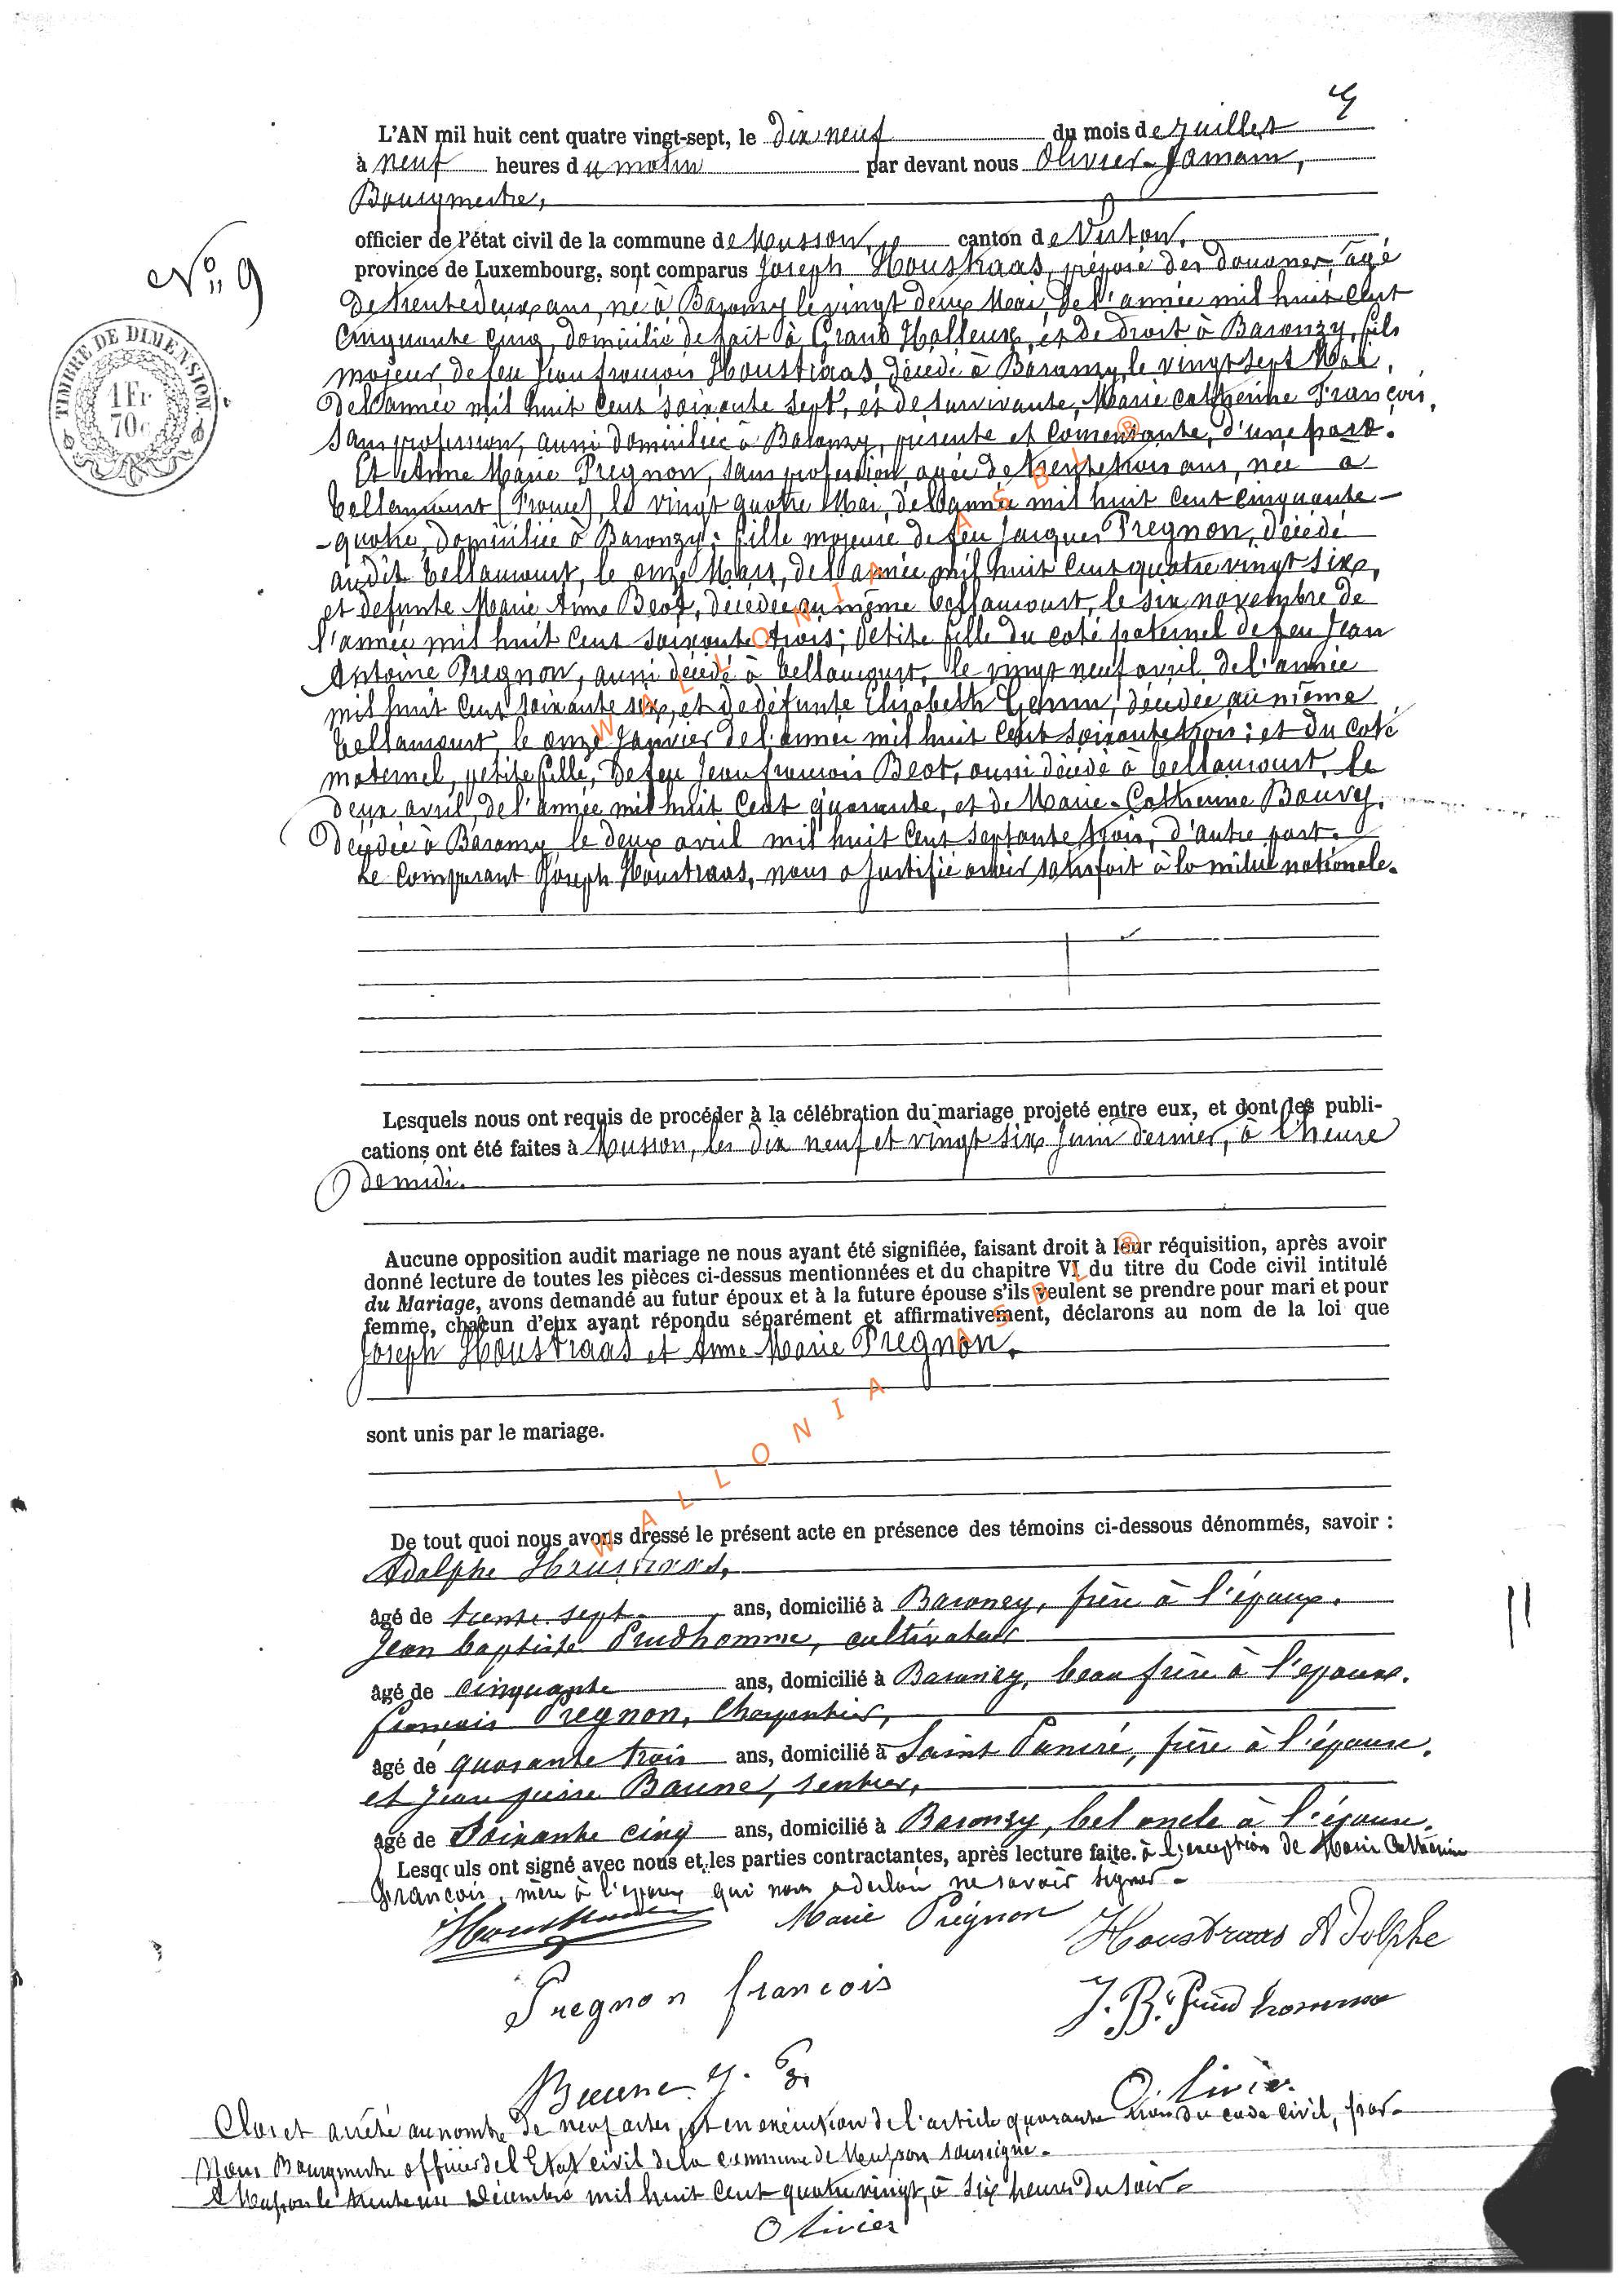 L'AN mil huit cent quatre vingt-sept, le dix neuf du mois de Juillet
à neuf heures du matin par devant nous Olivier-Jamain,
Bourgmestre,
officier de l'état civil de la commune de Musson, canton de Virton,
No 9
province de Luxembourg, sont comparus Joseph Houstraas, préposé des douanes, âgé
de trente deux ans, né à Baranzy le vingt deux Mai, de l'année mil huit cent
cinquante cinq, domicilié de fait à Grand Halleux, et de droit à Baranzy, fils
TIMBRE DE DIMENSION
1 Fr
70 c
majeur, de feu Jean françois Houstraas, décédé à Baranzy, le vingt sept Mai,
de l'année mil huit cent soixante sept, et de survivante, Marie Catherine François,
sans profession, aussi domiciliée à Baranzy, présente et consentante, d'une part.
Et Anne Marie Pregnon, sans profession, agée de trente trois ans, née à
Tellancourt (France), le vingt quatre Mai, de l'année mil huit cent cinquante-
-quatre, domiciliée à Baranzy; fille majeure de feu Jacques Pregnon, décédé
audit Tellancourt, le onze Mars, de l'année mil huit cent quatre vingt six,
et défunte Marie Anne Beot, décédée au même Tellancourt, le six novembre de
l'année mil huit cent soixante trois; petite fille du coté paternel de feu Jean
Antoine Pregnon, aussi décédé à Tellancourt, le vingt neuf avril de l'année
mil huit cent soixante six, et de défunte Elisabeth décédée au même
Tellancourt, le onze Janvier de l'année mil huit cent soixante trois; et du coté
maternel, petite fille, de feu Jean françois Beot, aussi décédé à Tellancourt, le
deux avril, de l'année mil huit cent quarante, et de Marie-Catherine Bouvy,
décédée à Baranzy le deux avril mil huit cent septante trois, d'autre part.
Le comparant Joseph Houstraas, nous a justifié avoir satisfait à la milice nationale.
Lesquels nous ont requis de procéder à la célébration du mariage projeté entre eux, et dont les publi-
cations ont été faites à Musson, les dix neuf et vingt six Juin dernier, à l'heure
de midi.
Aucune opposition audit mariage ne nous ayant été signifiée, faisant droit à leur réquisition, après avoir
donné lecture de toutes les pièces ci-dessus mentionnées et du chapitre VI du titre du Code civil intitulé
du Mariage, avons demandé au futur époux et à la future épouse s'ils veulent se prendre pour mari et pour
femme, chacun d'eux ayant répondu séparément et affirmativement, déclarons au nom de la loi que
Joseph Houstraas et Anne Marie Pregnon.
sont unis par le mariage.
De tout quoi nous avons dressé le présent acte en présence des témoins ci-dessous dénommés, savoir :
Adolphe Houstraas,
âgé de trente sept ans, domicilié à Baranzy, frère à l'époux.
Jean baptiste Prudhomme, cultivateur
âgé de cinquante ans, domicilié à Baranzy, beau frère à l'époux.
françois Pregnon, Charpentier,
âgé de quarante trois ans, domicilié à Saint Pancré, frère à l'épouse.
et Jean pierre Baune, rentier,
âgé de Soixante cinq ans, domicilié à Baranzy, bel oncle à l'épouse.
Lesquels ont signé avec nous et les parties contractantes, après lecture faite. à l'exception de Marie Catherine
François, mère à l'époux qui nous a déclaré ne savoir signer.
Houstraas Marie Prégnon Houstraas Adolphe
Pregnon francois J. B. Prudhomme
Baune J. P. Olivier
Clos et arrêté au nombre de neuf actes, et en exécution de l'article quarante trois du code civil, par
Nous Bourgmestre officier de l'Etat civil de la commune de Musson soussigné.
A Musson le trente un Décembre mil huit cent quatre vingt, à six heures du soir.
Olivier
WALLONIA ASBL ®
WALLONIA ASBL ®